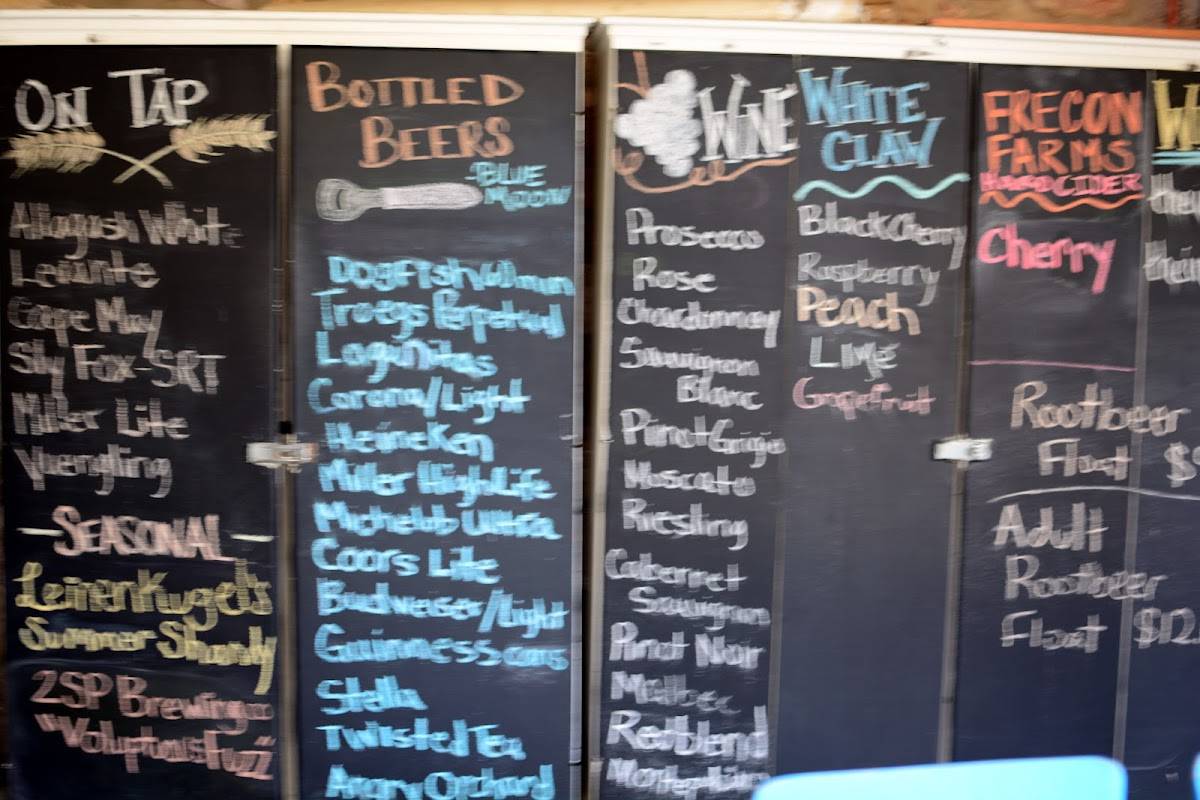 ON TAP
Allagash White
Levante
Cape May
Sly Fox-SRT
Miller Lite
Yuengling
-SEASONAL-
Leinenkugel's
Summer Shandy
2SP Brewing
"Voluptuous Fuzz"
BOTTLED
BEERS
-BLUE
MOON
Dogfish 60 min
Troegs Perpetual
Lagunitas
Corona/Light
Heineken
Miller High Life
Michelob Ultra
Coors Lite
Budweiser/Light
Guinness cans
Stella
Twisted Tea
Angry Orchard
WINE
Prosecco
Rose
Chardonnay
Sauvignon
Blanc
Pinot Grigio
Moscato
Riesling
Caberret
Sauvignon
Pinot Noir
Malbec
Redblend
WHITE
CLAW
Black Cherry
Raspberry
Peach
Lime
Grapefruit
FRECON
FARMS
HARD CIDER
Cherry
Rootbeer
Float
Adult
Rootbeer
Float $12